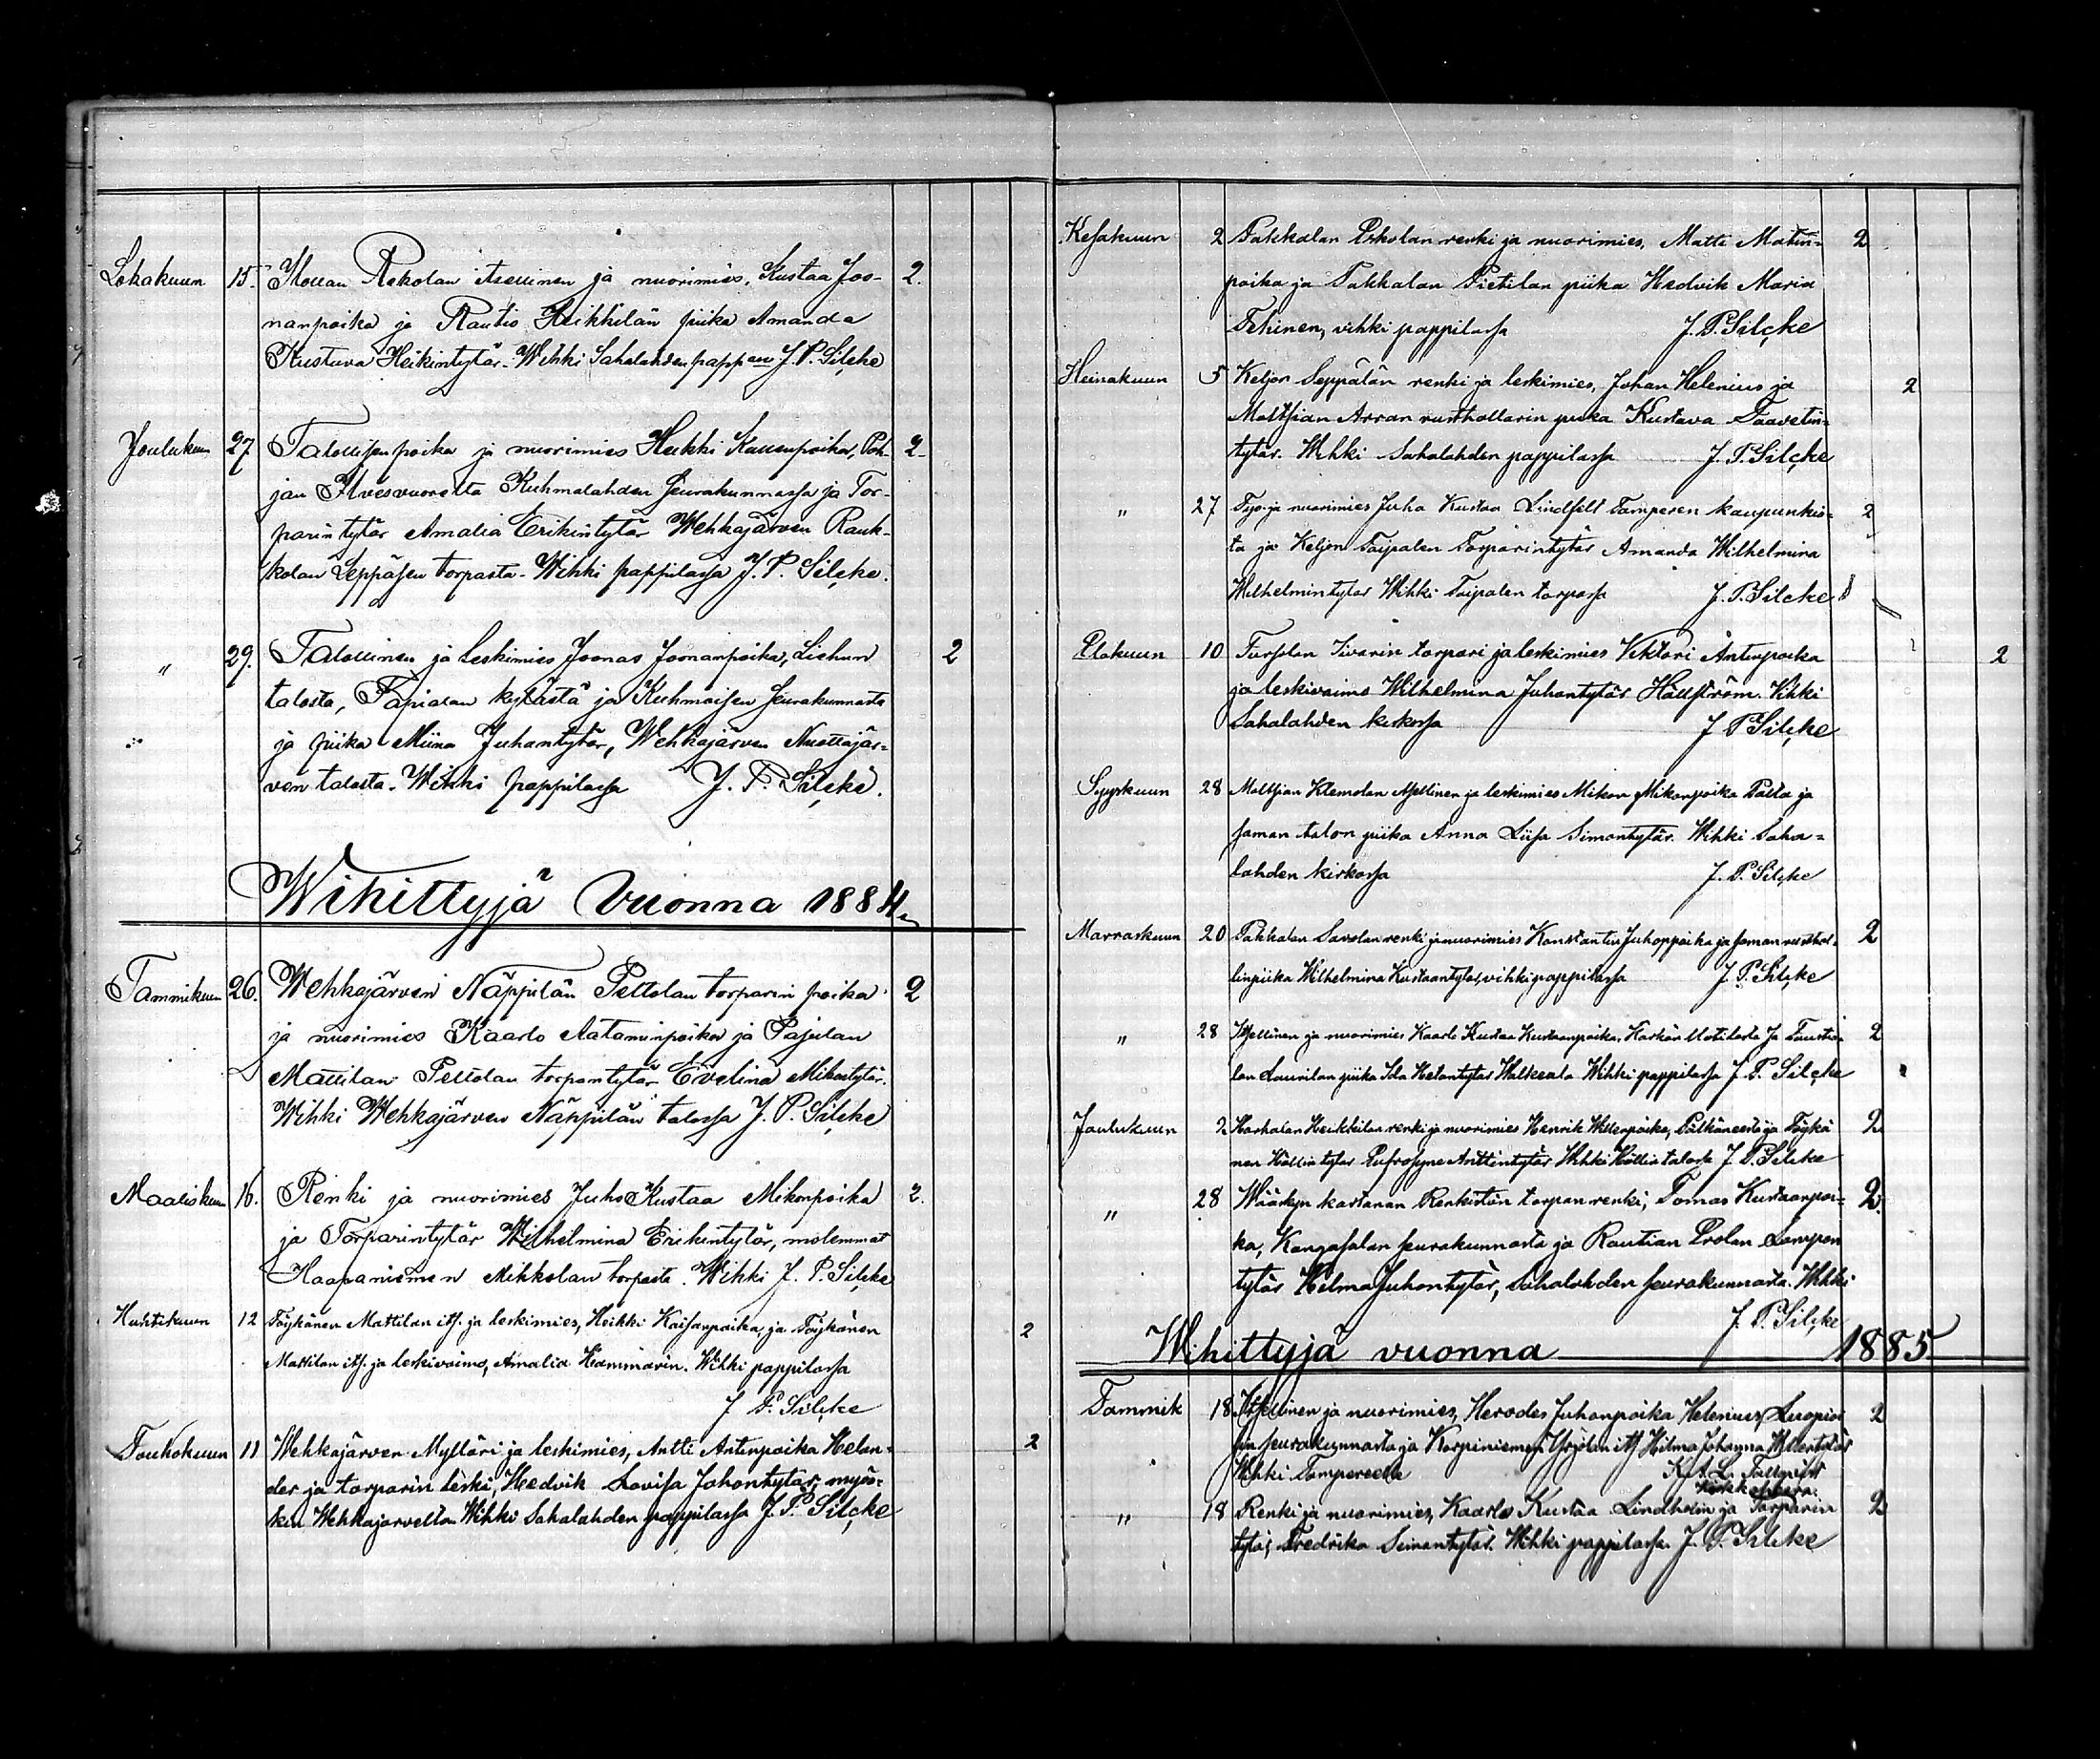 Lokakuun 15. Ilollan Rekolan itsellinen ja nuorimies, Kustaa Joo- 2.
nanpoika ja Rautio Heikkilän piika Amanda
Kustava Heikintytär. Wihki Sahalahden pappan J. P. Silcke
Joulukuun 27 Talollisenpoika ja nuorimies Heikki Kallenpoika, Poh- 2
jan Ilvesvuorelta Kuhmalahden seurakunnassa ja Tor-
parin tytär Amalia Erikintytär Wehkajärven Rauk-
kolan Leppäsen torpasta. Wihki pappilassa J. P. Silcke.
" 29. Talollinen ja leskimies Joonas Joonanpoika, Liehun 2
talosta, Päpialan kylästä ja Kuhmoisen seurakunnasta
ja piika Miina Juhantytär, Wehkajärven Nuottajär=
ven talosta. Wihki pappilassa J. P. Silcke.
Wihittyjä Vuonna 1884.
Tammikuun 26. Wehkajärven Näppilän Peltolan torparin poika 2
ja nuorimies Kaarlo Aataminpoika ja Pajulan
Mattilan Peltolan torparintytär Evelina Mikontytär.
Wihki Wehkajärven Näppilän talossa J. P. Silcke
Maaliskuun 16. Renki ja nuorimies Juho Kustaa Mikonpoika 2.
ja Torparintytär Wilhelmina Erikintytär, molemmat
Haapaniemen Mikkolan torpasta. Wihki J. P. Silcke
Huhtikuun 12 Töykänen Mattilan its. ja leskimies, Heikki Kaisanpoika, ja Töykänen 2
Mattilan its. ja leskivaimo, Amalia Hammarin. Wihki pappilassa
J P. Silcke
Toukokuun 11 Wehkajärven Mylläri ja leskimies, Antti Antinpoika Helan= 2
der ja torparin leski, Hedvik Lovisa Johantytär, myös=
kin Wehkajarvelta Wihki Sahalahden pappilassa J. P. Silcke
Kesakuun 2 Pakkalan Erkolan renki ja nuorimies, Matti Matin= 2
poika ja Pakkalan Pietilan piika Hedvik Maria
Tehinen, vihki pappilassa J. P. Silcke
Heinakuun 5 Keljon Seppälän renki ja leskimies, Johan Helenius ja 2
Moltsian Arran rusthollarin piika Kustava Taavetin=
tytär. Wihki Sahalahden pappilassa J. P. Silcke
" 27 Työ- ja nuorimies Juha Kustaa Lindfelt Tamperen kaupunkis= 2
ta ja Keljon Taipalen Torparintytär Amanda Wilhelmina
Wilhelmintytar Wihki Taipalen torpassa J. P. Silcke
Elokuun 10 Tursolan Iivarin torpari ja leskimies Viktori Antinpoika 2
ja leskivaimo Wilhelmina Juhantytär Hällström. Vihki
Sahalahden kirkossa J P Silcke
Syyskuun 28 Moltsian Klemolan itsellinen ja leskimies Mikon Mikonpoika Palta ja
saman talon piika Anna Liisa Simontytär. Wihki Saha=
lahden kirkossa J. P. Silcke
Marraskuun 20 Pakkalan Savolan renki ja nuorimies Konstantin Juhonpoika ja saman rusthol= 2
linpiika Wilhelmina Kustaantytar, vihki pappilassa J. P. Silcke
" 28 Itsellinen ja nuorimies Kaarlo Kustaa Kustaanpoika, 2
lan Laurilan piika Ida Wihki pappilassa J. P. Silcke
Joulukuun 2 Haskalan Heikkilan renki ja nuorimies Henrik Willenpoika, Pälkäneeltä ja Töykä 2
nen Källin tytar Eufrosyne Anttintytär Wihki Källin talossa J. P. Silcke
" 28 Wääksyn kartanan torpan renki, Tomas Kustaanpoi= 2
ka, Kangasalan seurakunnasta ja Rautian Erolan Lampon
tytär Helma Juhontytär, Sahalahden seurakunnasta. Wihki
J. P. Silcke
Wihittyjä vuonna 1885
Tammik 18 Itsellinen ja nuorimies, Herodes Juhanpoika Helenius, Luopioi 2
sen seurakunnasta ja Korpiniemen Yrjölän its Hilma Johanna
Wihki Tampereella K. A. L. Tallqvist
Kirkkoherra
" 18 Renki ja nuorimies, Kaarlo Kustaa Lindholm ja Torparin 2
tytär, Fredrika Simontytär. Wihki pappilassa J. P. Silcke